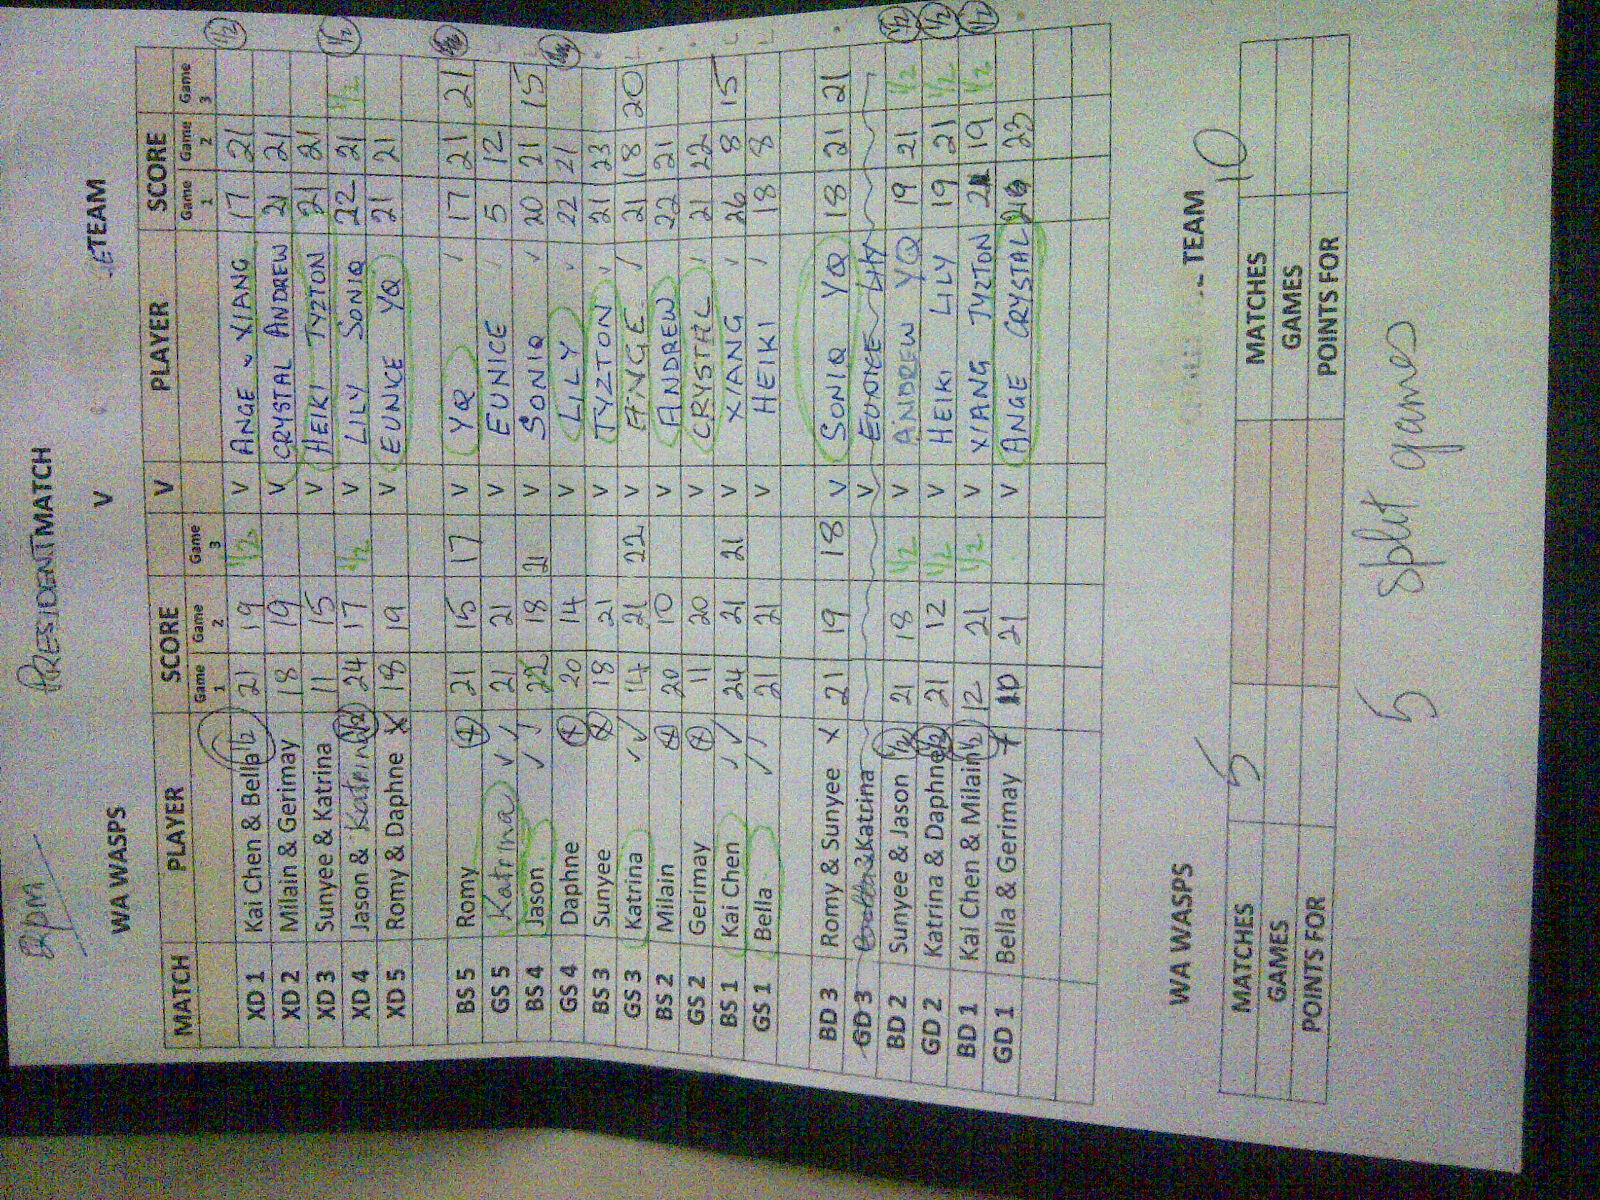 2pm PRESIDENT MATCH
WA WASPS V TEAM
MATCH PLAYER SCORE V PLAYER SCORE
Game 1 Game 2 Game 3 Game 1 Game 2 Game 3
XD 1 Kai Chen & Bella 1/2 21 19 1/2 V ANGE XIANG 17 21 1/2
XD 2 Milain & Gerimay 18 19 V CRYSTAL ANDREW 21 21
XD 3 Sunyee & Katrina 11 15 V HEIKI TYZTON 21 21
XD 4 Jason & Katrina 1/2 24 17 1/2 V LILY SONIQ 22 21 1/2 1/2
XD 5 Romy & Daphne X 18 19 V EUNICE YQ 21 21
BS 5 Romy 21 15 17 V YQ 17 21 21
GS 5 Katrina ✓ 21 21 V EUNICE 5 12 L
BS 4 Jason ✓ ✓ 22 18 21 V SONIQ ✓ 20 21 15 L
GS 4 Daphne 20 14 V LILY ✓ 22 21
BS 3 Sunyee 18 21 V TYZTON ✓ 21 23
GS 3 Katrina ✓ ✓ 14 21 22 V ANGE 21 18 20 L
BS 2 Milain 20 10 V ANDREW 22 21
GS 2 Gerimay 11 20 V CRYSTAL ✓ 21 22
BS 1 Kai Chen ✓ ✓ 24 21 21 V XIANG ✓ 26 8 15 L
GS 1 Bella ✓ ✓ 21 21 V HEIKI 18 8 L
BD 3 Romy & Sunyee X 21 19 18 V SONIQ YQ 18 21 21
GD 3 & Katrina V EUNICE LILY
BD 2 Sunyee & Jason 1/2 21 18 1/2 V ANDREW YQ 19 21 1/2 1/2
GD 2 Katrina & Daphne 1/2 21 12 1/2 V HEIKI LILY 19 21 1/2 1/2
BD 1 Kai Chen & Milain 1/2 12 21 1/2 V XIANG TYZTON 21 19 1/2 1/2
GD 1 Bella & Gerimay 10 21 V ANGE CRYSTAL 23
WA WASPS TEAM
MATCHES 5 MATCHES 10
GAMES GAMES
POINTS FOR POINTS FOR
5 split games